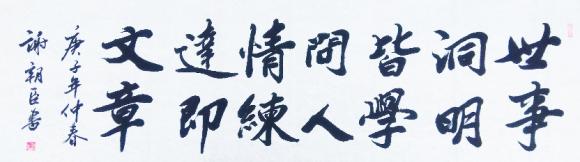 世事
洞明
皆學
問人
情練
達即
文章
庚子年仲春
謝朝臣書